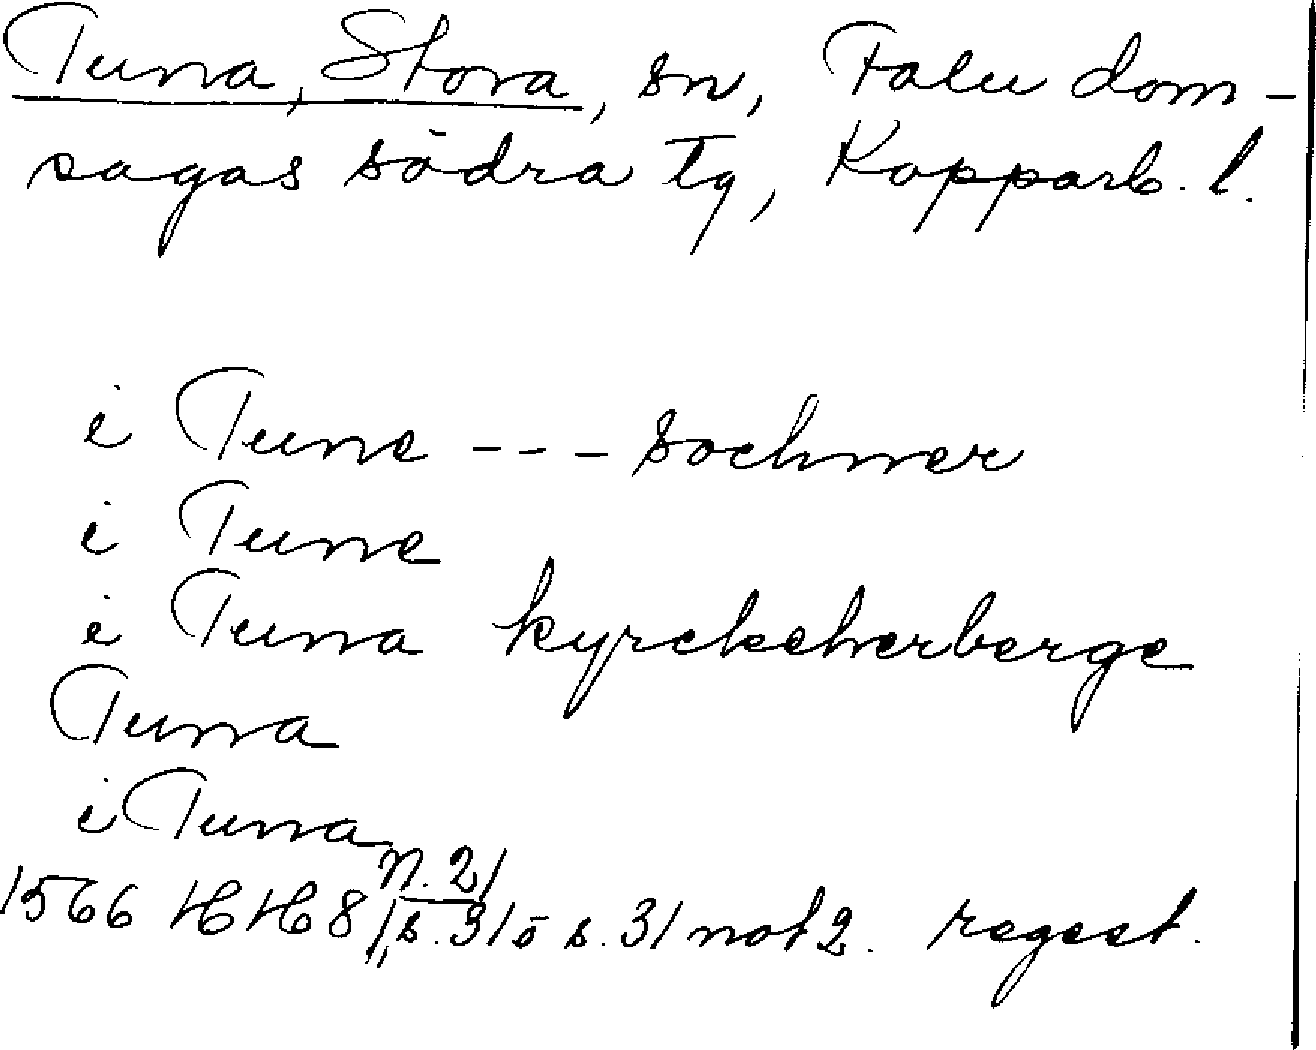 Tuna, Stora, sn, Falu dom-
sagas södra tg, Kopparb. l.
i Tune --- sochner
i Tune
i Tuna kyrckeherberge
Tuna
i Tuna
n. 2/
1566 HH 8/, s. 31 o s. 31 not 2. regest.